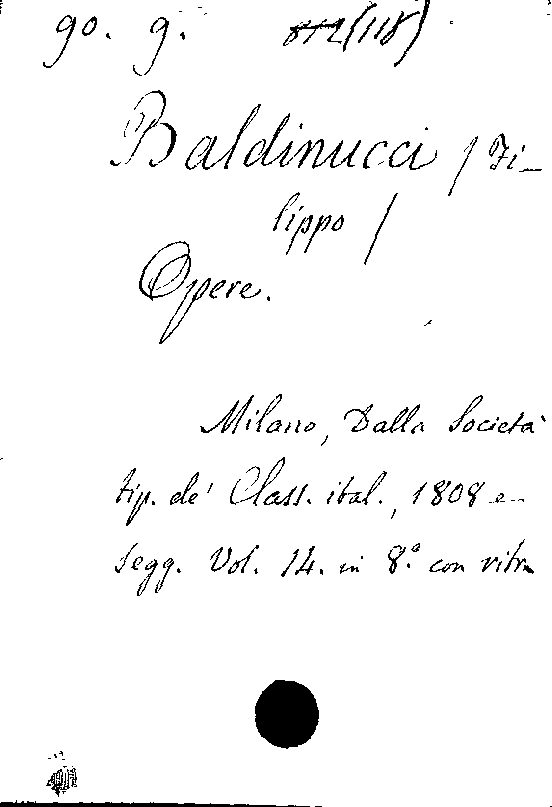 90. g. 812(118)
Baldinucci / Fi-
lippo /
Opere.
Milano, Dalla Società
tip. de' Class. ital., 1808 e
segg. Vol. 14. in 8.° con ritr.